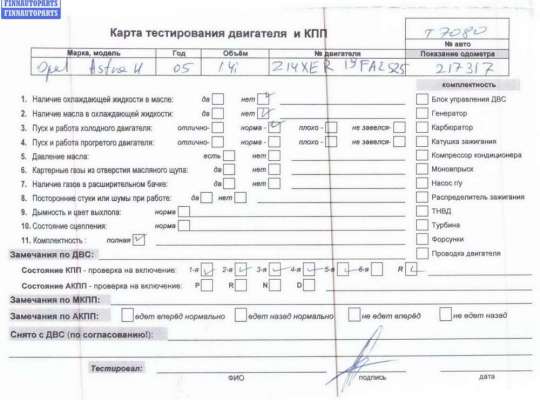 FINNAUTOPARTS
FINNAUTOPARTS
Карта тестирования двигателя и КПП
T 7080
№ авто
Марка, модель Год Объём № двигателя Показание одометра
Opel Astra H 05 1.4i Z14XER 19FA2525 217317
комплектность
1. Наличие охлаждающей жидкости в масле: да нет
2. Наличие масла в охлаждающей жидкости: да нет
3. Пуск и работа холодного двигателя: отлично- норма - плохо - не завелся-
4. Пуск и работа прогретого двигателя: отлично- норма - плохо - не завелся-
5. Давление масла: есть нет
6. Картерные газы из отверстия масляного щупа: да нет
7. Наличие газов в расширительном бачке: да нет
8. Посторонние стуки или шумы при работе: да нет
9. Дымность и цвет выхлопа: норма
10. Состояние сцепления: норма
11. Комплектность : полная
Блок управления ДВС
Генератор
Карбюратор
Катушка зажигания
Компрессор кондиционера
Моновпрыск
Насос г/у
Распределитель зажигания
ТНВД
Турбина
Форсунки
Проводка двигателя
Замечания по ДВС:
Состояние КПП - проверка на включение: 1-я 2-я 3-я 4-я 5-я 6-я R
Состояние АКПП - проверка на включение: P R N D
Замечания по МКПП:
Замечания по АКПП: едет вперёд нормально едет назад нормально не едет вперёд не едет назад
Снято с ДВС (по согласованию!):
Тестировал:
ФИО подпись дата